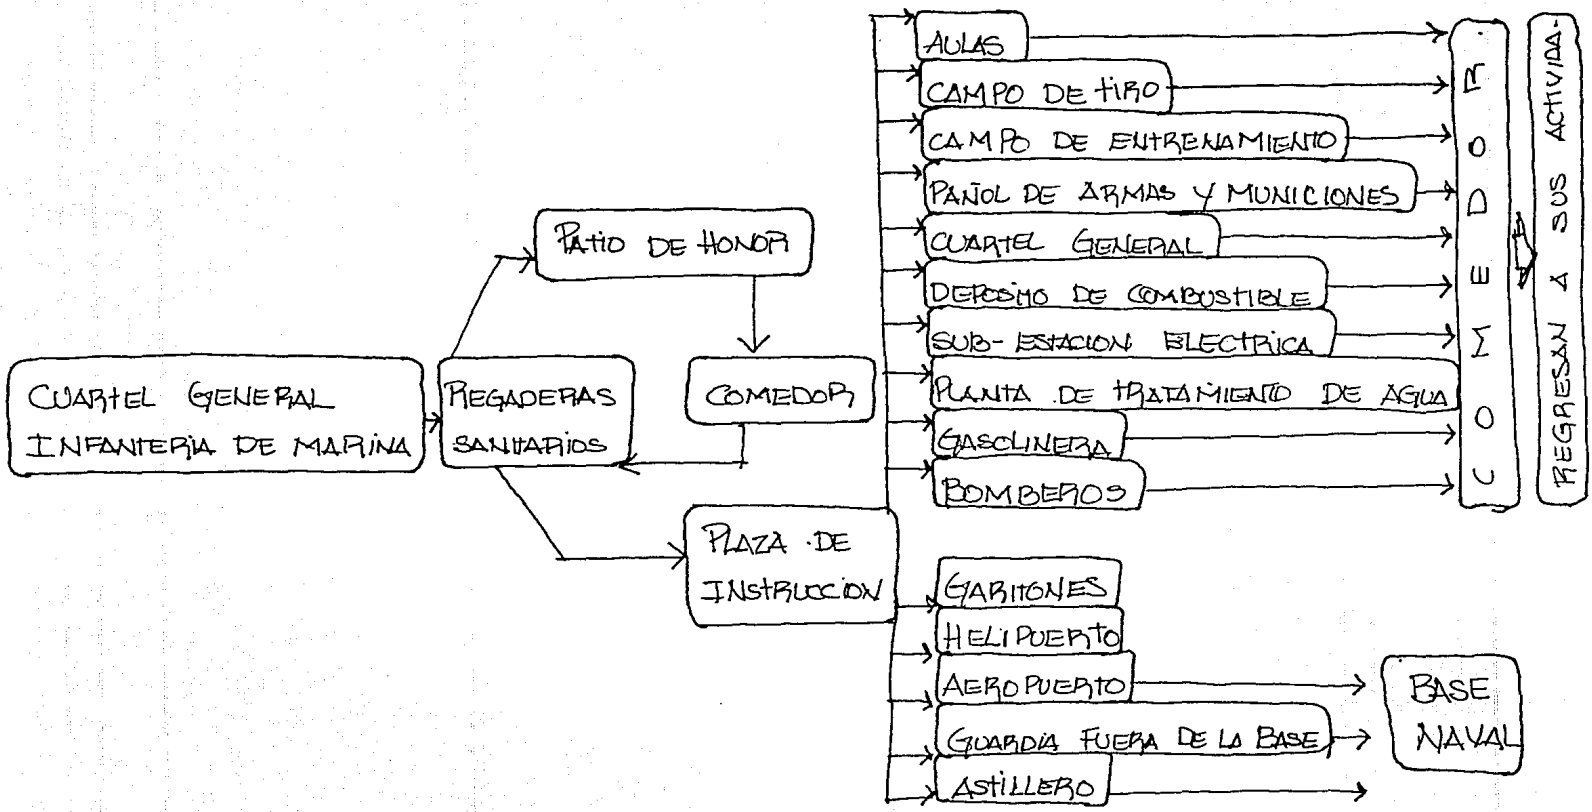 CUARTEL GENERAL
INFANTERIA DE MARINA
REGADERAS
SANITARIOS
PATIO DE HONOR
COMEDOR
PLAZA DE
INSTRUCCION
AULAS
CAMPO DE TIRO
CAMPO DE ENTRENAMIENTO
PAÑOL DE ARMAS Y MUNICIONES
CUARTEL GENERAL
DEPOSITO DE COMBUSTIBLE
SUB-ESTACION ELECTRICA
PLANTA DE TRATAMIENTO DE AGUA
GASOLINERA
BOMBEROS
GARITONES
HELIPUERTO
AEROPUERTO
GUARDIA FUERA DE LA BASE
ASTILLERO
COMEDOR.
REGRESAN A SUS ACTIVIDA-
BASE
NAVAL